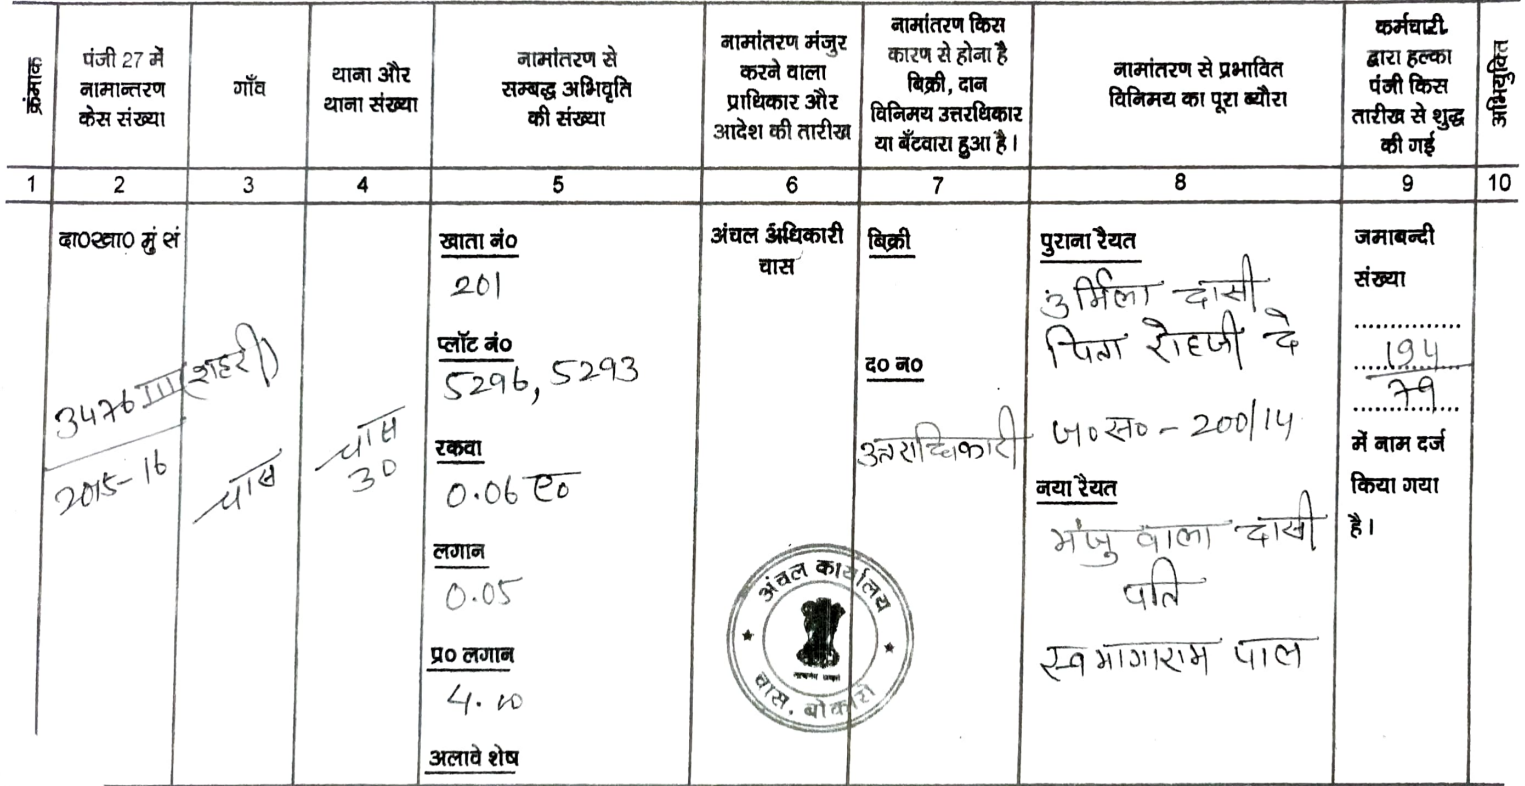 क्रंमाक
पंजी 27 में
नामान्तरण
केस संख्या
गाँव
थाना और
थाना संख्या
नामांतरण से
सम्बद्ध अभिवृति
की संख्या
नामांतरण मंजुर
करने वाला
प्राधिकार और
आदेश की तारीख
नामांतरण किस
कारण से होना है
बिक्री, दान
विनिमय उत्तरधिकार
या बँटवारा हुआ है।
नामांतरण से प्रभावित
विनिमय का पूरा ब्यौरा
कर्मचारी
द्वारा हल्का
पंजी किस
तारीख से शुद्ध
की गई
अभियुक्ति
1 2 3 4 5 6 7 8 9 10
दा०खा० मुं सं
3476 III (शहरी)
2015-16
चास
चास
30
खाता नं०
201
प्लॉट नं०
5296, 5293
रकवा
0.06 ए०
लगान
0.05
प्र० लगान
4.10
अलावे शेष
अंचल अधिकारी
चास
अंचल कार्यालय
चास. बोकारो
बिक्री
द० न०
उत्तराधिकारी
पुराना रैयत
उर्मिला दासी
पिता दे
ज०स० - 200/14
नया रैयत
मंजु वाला दासी
पति
स्व मागाराम पाल
जमाबन्दी
संख्या
194
79
में नाम दर्ज
किया गया
है।